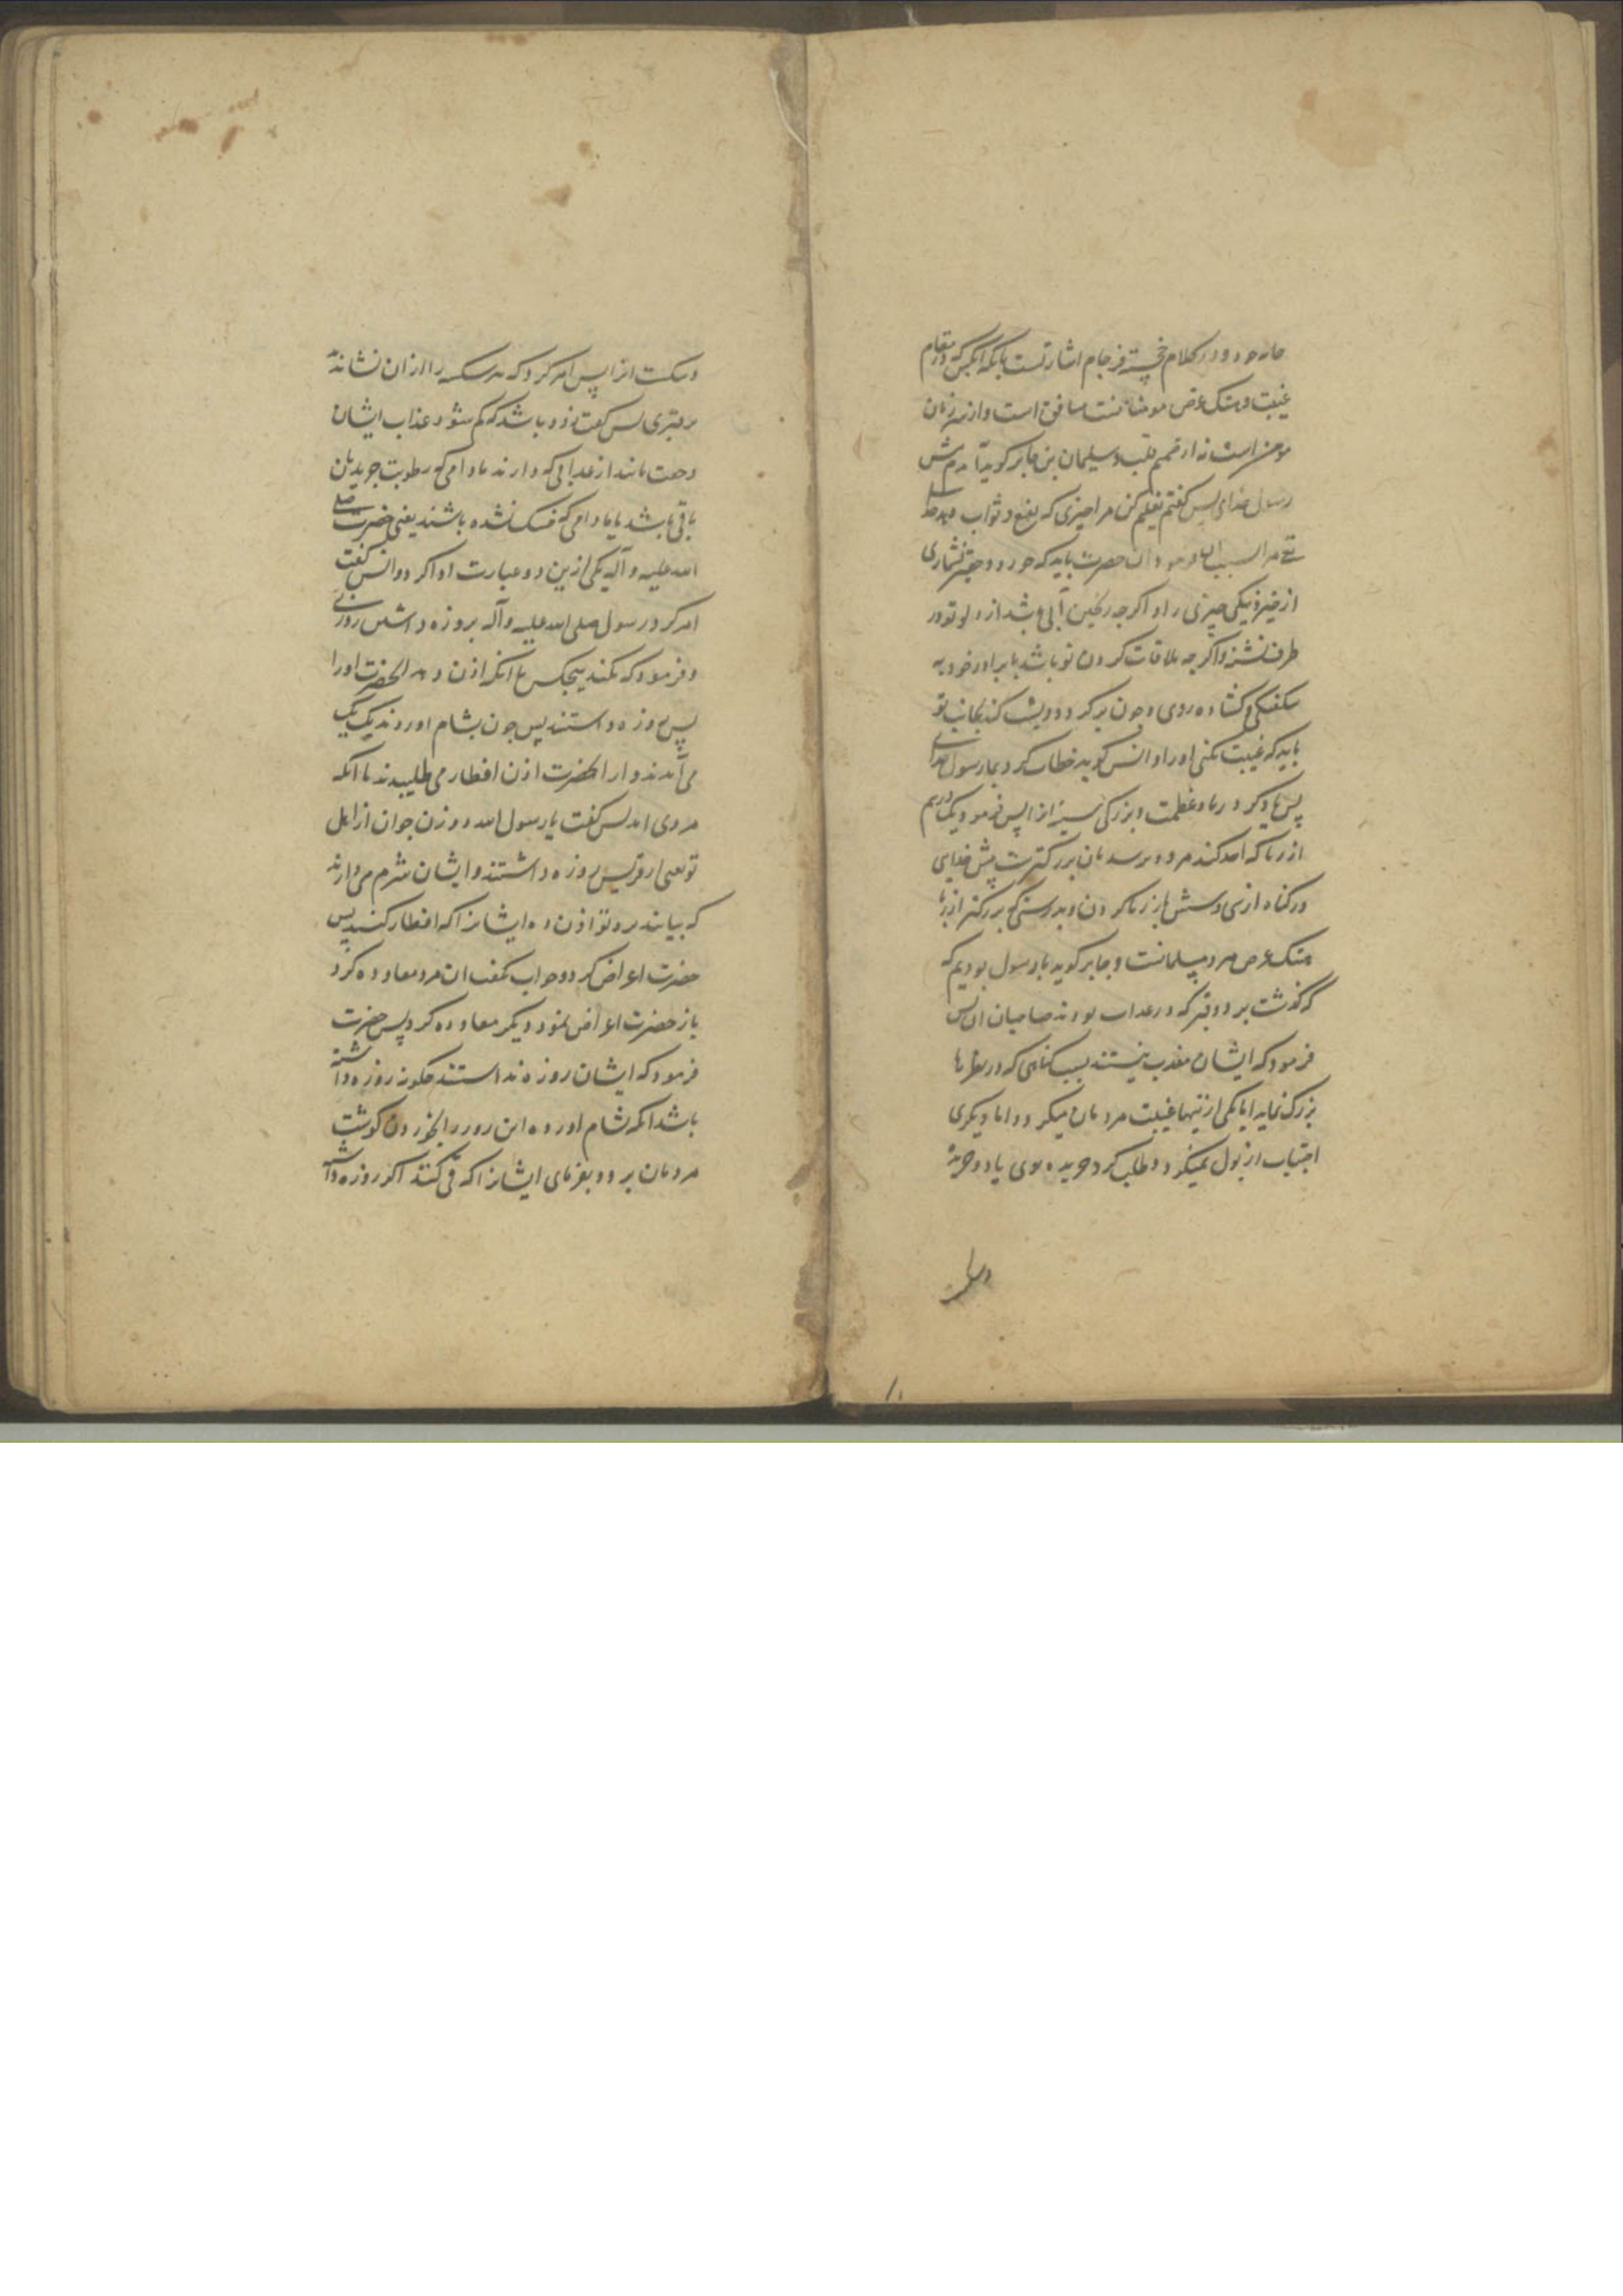 خانه خود و در کلام خجسته فرجام اشارتست بانکه انکس که در مقام
غیبت و هتک عرض مومنانست منافق است و از سر زبان
مومن است نه از صمیم قلب و سلیمان بن جابر کوید آمدم پیش
رسول خدای پس کفتم تعلیم کن مرا چیزی که نفع و ثواب دهد خدا
تعالی مرا بسبب ان فرمود ان حضرت باید که خورد و حقیر نشماری
از خیر و نیکی چیزی را و اکرچه ریختن آبی باشد از دلو تو در
ظرف تشنه و اکرچه ملاقات کردن تو باشد با برادر خود به
شکفتکی و کشاده روی و چون بر کردد و پشت کند بجانب تو
باید که غیبت نکنی او را و انس کوید خطاب کرد بما رسول خدای
پس یاد کرد ربا و عظمت و بزرکی انرا پس فرمود یک درهم
از ربا که اخذ کند مرد و برسد بان بزرکترست پیش خدای
در کناه از سی و شش بار زنا کردن و بدرستی که بزرکتر از ربا
هتک عرض مرد مسلمانست و جابر کوید با رسول بودیم که
که کذشت بر دو قبر که در عذاب بودند صاحبان ان پس
فرمود که ایشان معذب نیستند بسبب کناهی که در نظرها
بزرک نماید اما یکی ازینها غیبت مردمان میکرد و اما دیکری
اجتناب از بول نمیکرد و طلب کرد جریده یا دو جریده
و شکست انرا پس امر کرد که هر شکسته را از ان نشاندند
بر قبری پس کفت زود باشد که کم شود عذاب ایشان
از عذابی که دارند مادامی که رطوبت جریدتان
باقی باشد یا مادامی که خشک نشده باشند یعنی حضرت صلی
الله علیه و آله یکی ازین دو عبارت ادا کرد و انس کفت
امر کرد رسول صلی الله علیه و آله بروزه داشتن روزی
و فرمود که نکند هیچکس تا انکه اذن دهد انحضرت او را
پس روزه داشتند پس چون بشام اوردند یک یک
می آمدند و از انحضرت اذن افطار می طلبیدند تا انکه
مردی امد پس کفت یا رسول الله دو زن جوان از اهل
تو یعنی از قریش روزه داشتند و ایشان شرم می دارند
که بیایند نزد تو اذن ده ایشانرا که افطار کنند پس
حضرت اعراض کرد و جواب نکفت ان مرد معاوده کرد
باز حضرت اعراض نمود دیکر معاوده کرد پس حضرت
فرمود که ایشان روزه نداشتند چکونه روزه داشته
باشد انکه شام اورده این روز را بخوردن کوشت
مردمان برو و بفرمای ایشانرا که قی کنند اکر روزه داشته